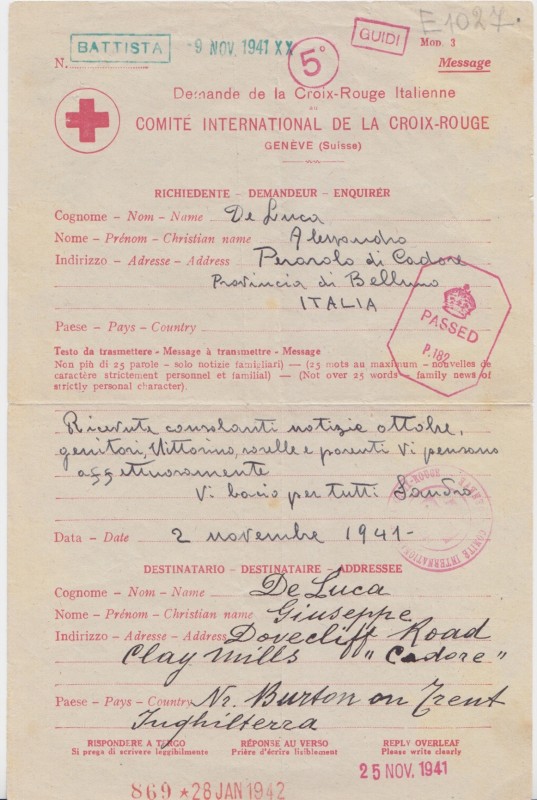 E1027.
BATTISTA
-9 NOV. 1941 XX
5°
GUIDI
Mod. 3
N.
Message
Demande de la Croix-Rouge Italienne
au
COMITÉ INTERNATIONAL DE LA CROIX-ROUGE
GENÈVE (Suisse)
RICHIEDENTE - DEMANDEUR - ENQUIRER
Cognome - Nom - Name De Luca
Nome - Prénom - Christian name Alessandro
Indirizzo - Adresse - Address Perarolo di Cadore
Provincia di Belluno
ITALIA
Paese - Pays - Country
PASSED
P.182
Testo da trasmettere - Message à transmettre - Message
Non più di 25 parole - solo notizie famigliari) — (25 mots au maximum - nouvelles de
caractère strictement personnel et familial) — (Not over 25 words - family news of
strictly personal character).
Ricevute consolanti notizie ottobre,
genitori, Vittorino, sorelle e parenti Vi pensano
affettuosamente
Vi bacio per tutti Sandro
Data - Date 2 novembre 1941-
COMITÉ INTERNATIONAL
DESTINATARIO - DESTINATAIRE - ADDRESSEE
Cognome - Nom - Name De Luca
Nome - Prénom - Christian name Giuseppe
Indirizzo - Adresse - Address Dovecliff Road
Clay Mills "Cadore"
Paese - Pays - Country Nr. Burton on Trent
Inghilterra
RISPONDERE A TERGO
Si prega di scrivere leggibilmente
RÉPONSE AU VERSO
Prière d'écrire lisiblement
REPLY OVERLEAF
Please write clearly
25 NOV. 1941
869 ★ 28 JAN 1942